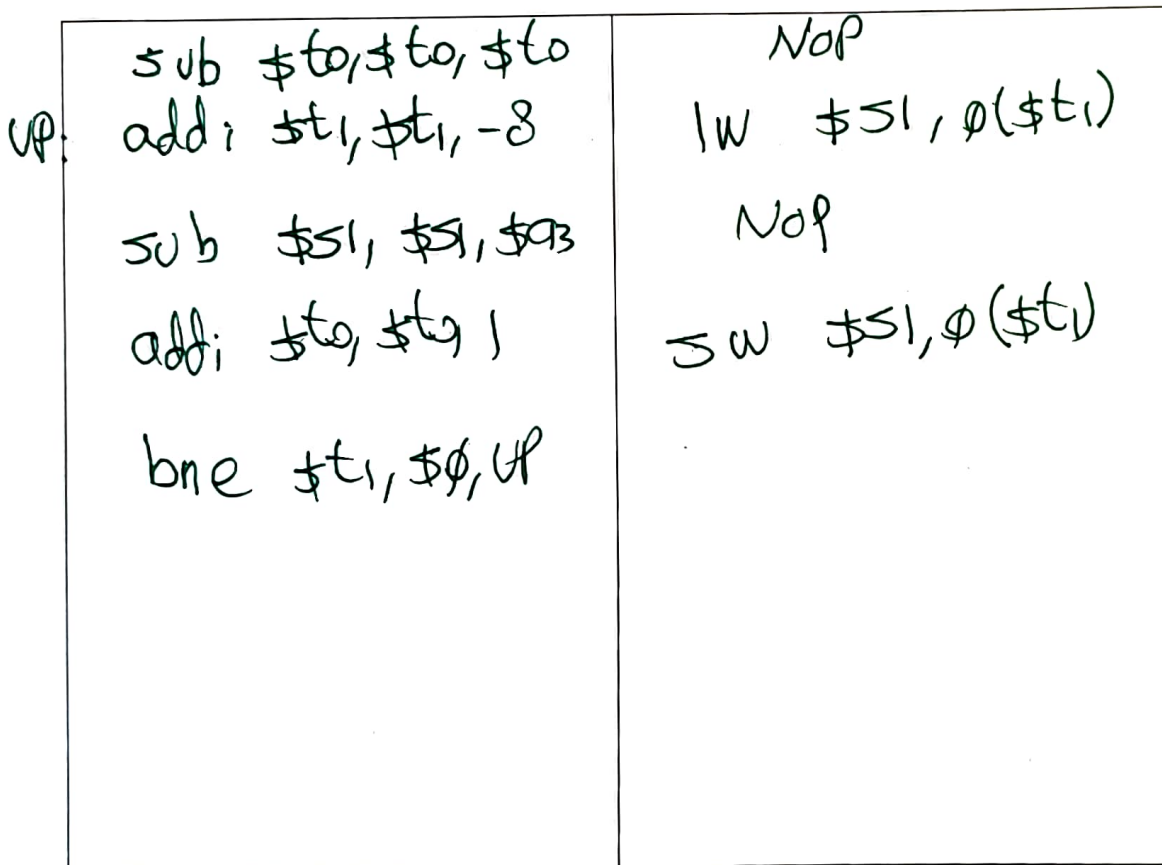 sub $t0, $t0, $t0 NOP
UP: addi $t1, $t1, -8 lw $s1, 0($t1)
sub $s1, $s1, $a3 NOP
addi $t0, $t0, 1 sw $s1, 0($t1)
bne $t1, $0, UP